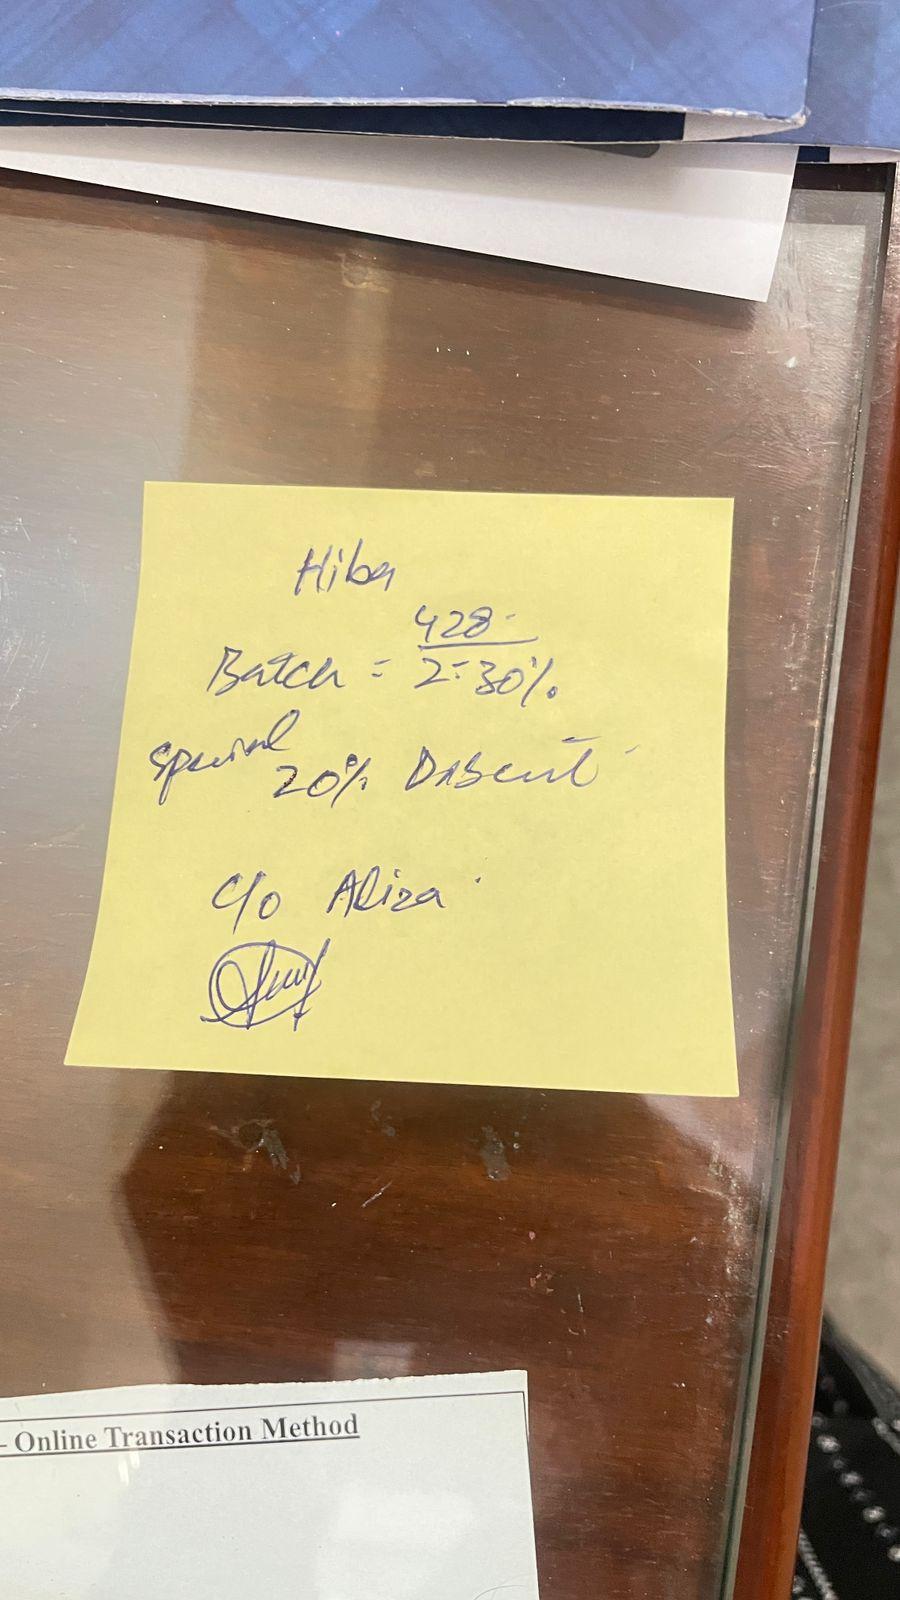 Hiba
428-
Batch = 2-30%.
Special
20% Discount
C/o Aliza
- Online Transaction Method